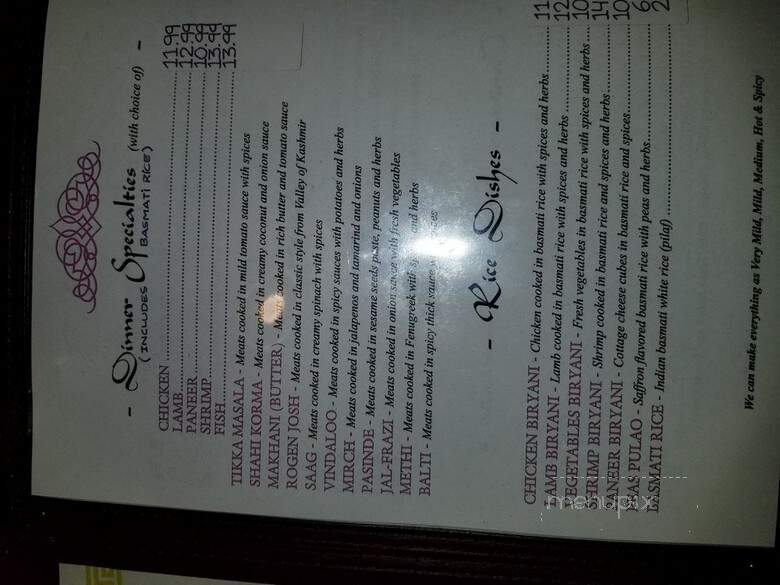 - Dinner Specialties (with choice of) -
(INCLUDES BASMATI RICE)
CHICKEN 11.99
LAMB 12.99
PANEER 10.99
SHRIMP 13.99
FISH 13.99
TIKKA MASALA - Meats cooked in mild tomato sauce with spices
SHAHI KORMA - Meats cooked in creamy coconut and onion sauce
MAKHANI (BUTTER) - Meats cooked in rich butter and tomato sauce
ROGEN JOSH - Meats cooked in classic style from Valley of Kashmir
SAAG - Meats cooked in creamy spinach with spices
VINDALOO - Meats cooked in spicy sauces with potatoes and herbs
MIRCH - Meats cooked in jalapenos and tamarind and onions
PASINDE - Meats cooked in sesame seeds paste, peanuts and herbs
JAL-FRAZI - Meats cooked in onion sauce with fresh vegetables
METHI - Meats cooked in Fenugreek with and herbs
BALTI - Meats cooked in spicy thick sauce
- Rice Dishes -
CHICKEN BIRYANI - Chicken cooked in basmati rice with spices and herbs 11
LAMB BIRYANI - Lamb cooked in basmati rice with spices and herbs 12
VEGETABLES BIRYANI - Fresh vegetables in basmati rice with spices and herbs 10
SHRIMP BIRYANI - Shrimp cooked in basmati rice and spices and herbs 14
PANEER BIRYANI - Cottage cheese cubes in basmati rice and spices 10
PEAS PULAO - Saffron flavored basmati rice with peas and herbs 6
BASMATI RICE - Indian basmati white rice (pilaf) 2
We can make everything as Very Mild, Mild, Medium, Hot & Spicy
menupix